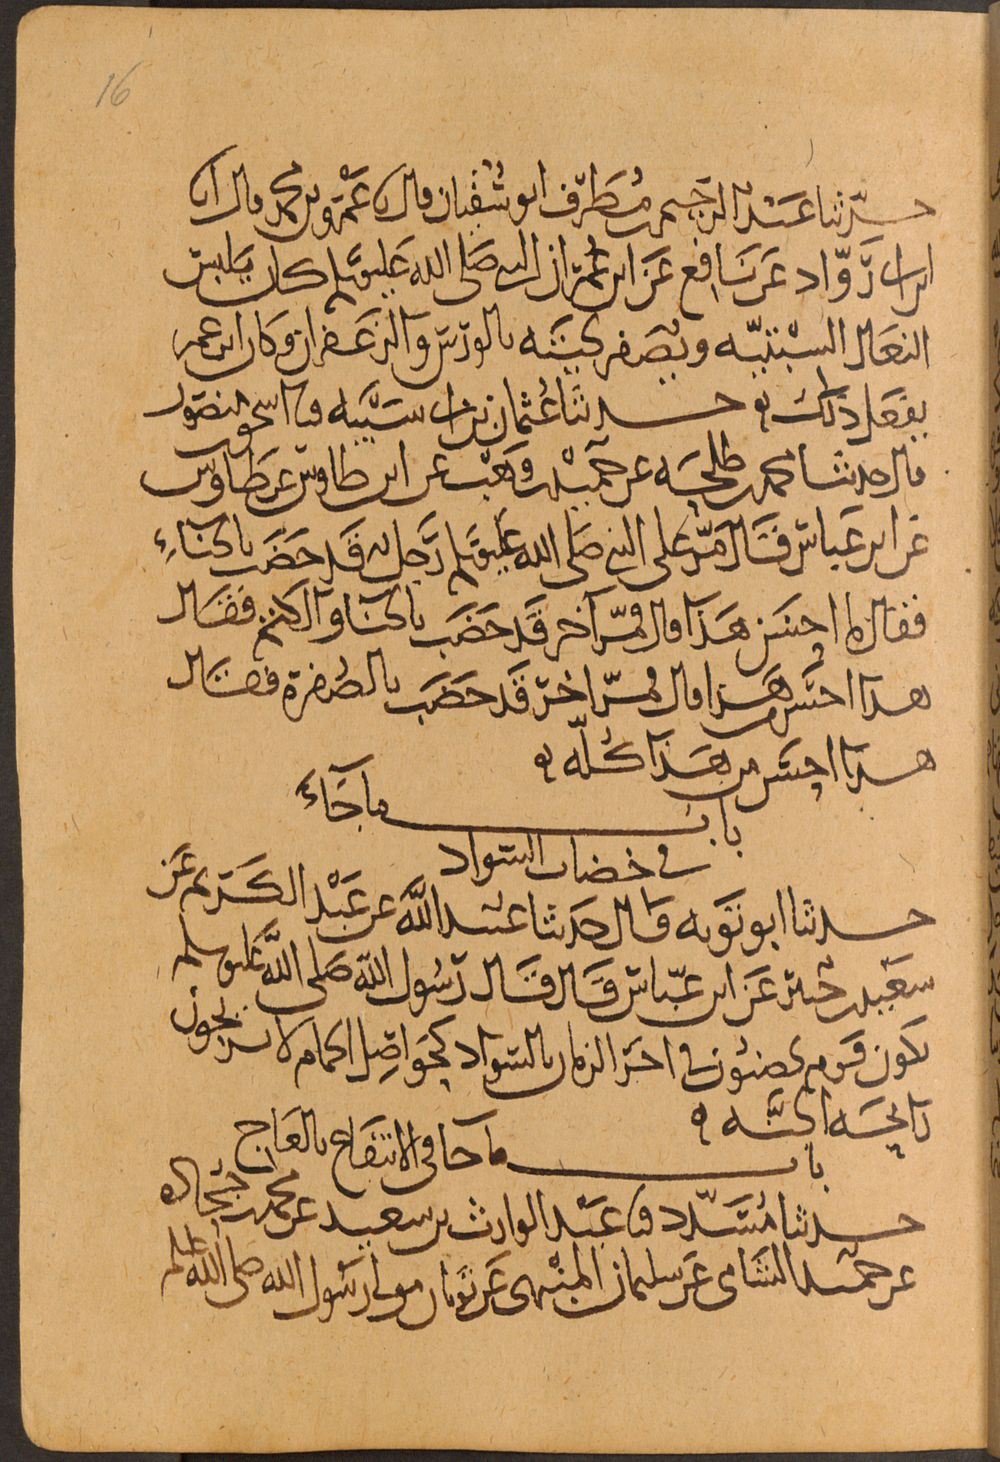 16
حدثنا عبد الرحيم بن مطرف ابو سفيان قال نا عمرو بن محمد قال انا
ابن ابي رواد عن نافع عن ابن عمر ان النبي صلى الله عليه وسلم كان يلبس
النعال السبتية ويصفر لحيته بالورس والزعفران وكان ابن عمر
يفعل ذلك ه حدثنا عثمان بن ابي شيبه نا اسحق بن منصور
قال حدثنا محمد بن طلحه عن حميد بن وهب عن ابن طاوس عن طاوس
عن ابن عباس فقال مر على النبي صلى الله عليه وسلم رجل قد خضب بالحناء
فقال ما احسن هذا قال فمر آخر قد خضب بالحنا والكتم فقال
هذا احسن من هذا قال فمر اخر قد خضب بالصفرة فقال
هذا احسن من هذا كله ه
باب ما جاء
في خضاب السواد
حدثنا ابو توبه قال حدثنا عبيد الله عن عبد الكريم عن
سعيد بن جبير عن ابن عباس قال قال رسول الله صلى الله عليه وسلم
يكون قوم يخضبون في اخر الزمان بالسواد كحواصل الحمام لا يريحون
رايحه الجنه ه
باب ما جا في الانتفاع بالعاج
حدثنا مسدد نا عبد الوارث بن سعيد عن محمد بن جحاده
عن حميد الشامي عن سليمان المنبهي عن ثوبان مولى رسول الله صلى الله عليه وسلم